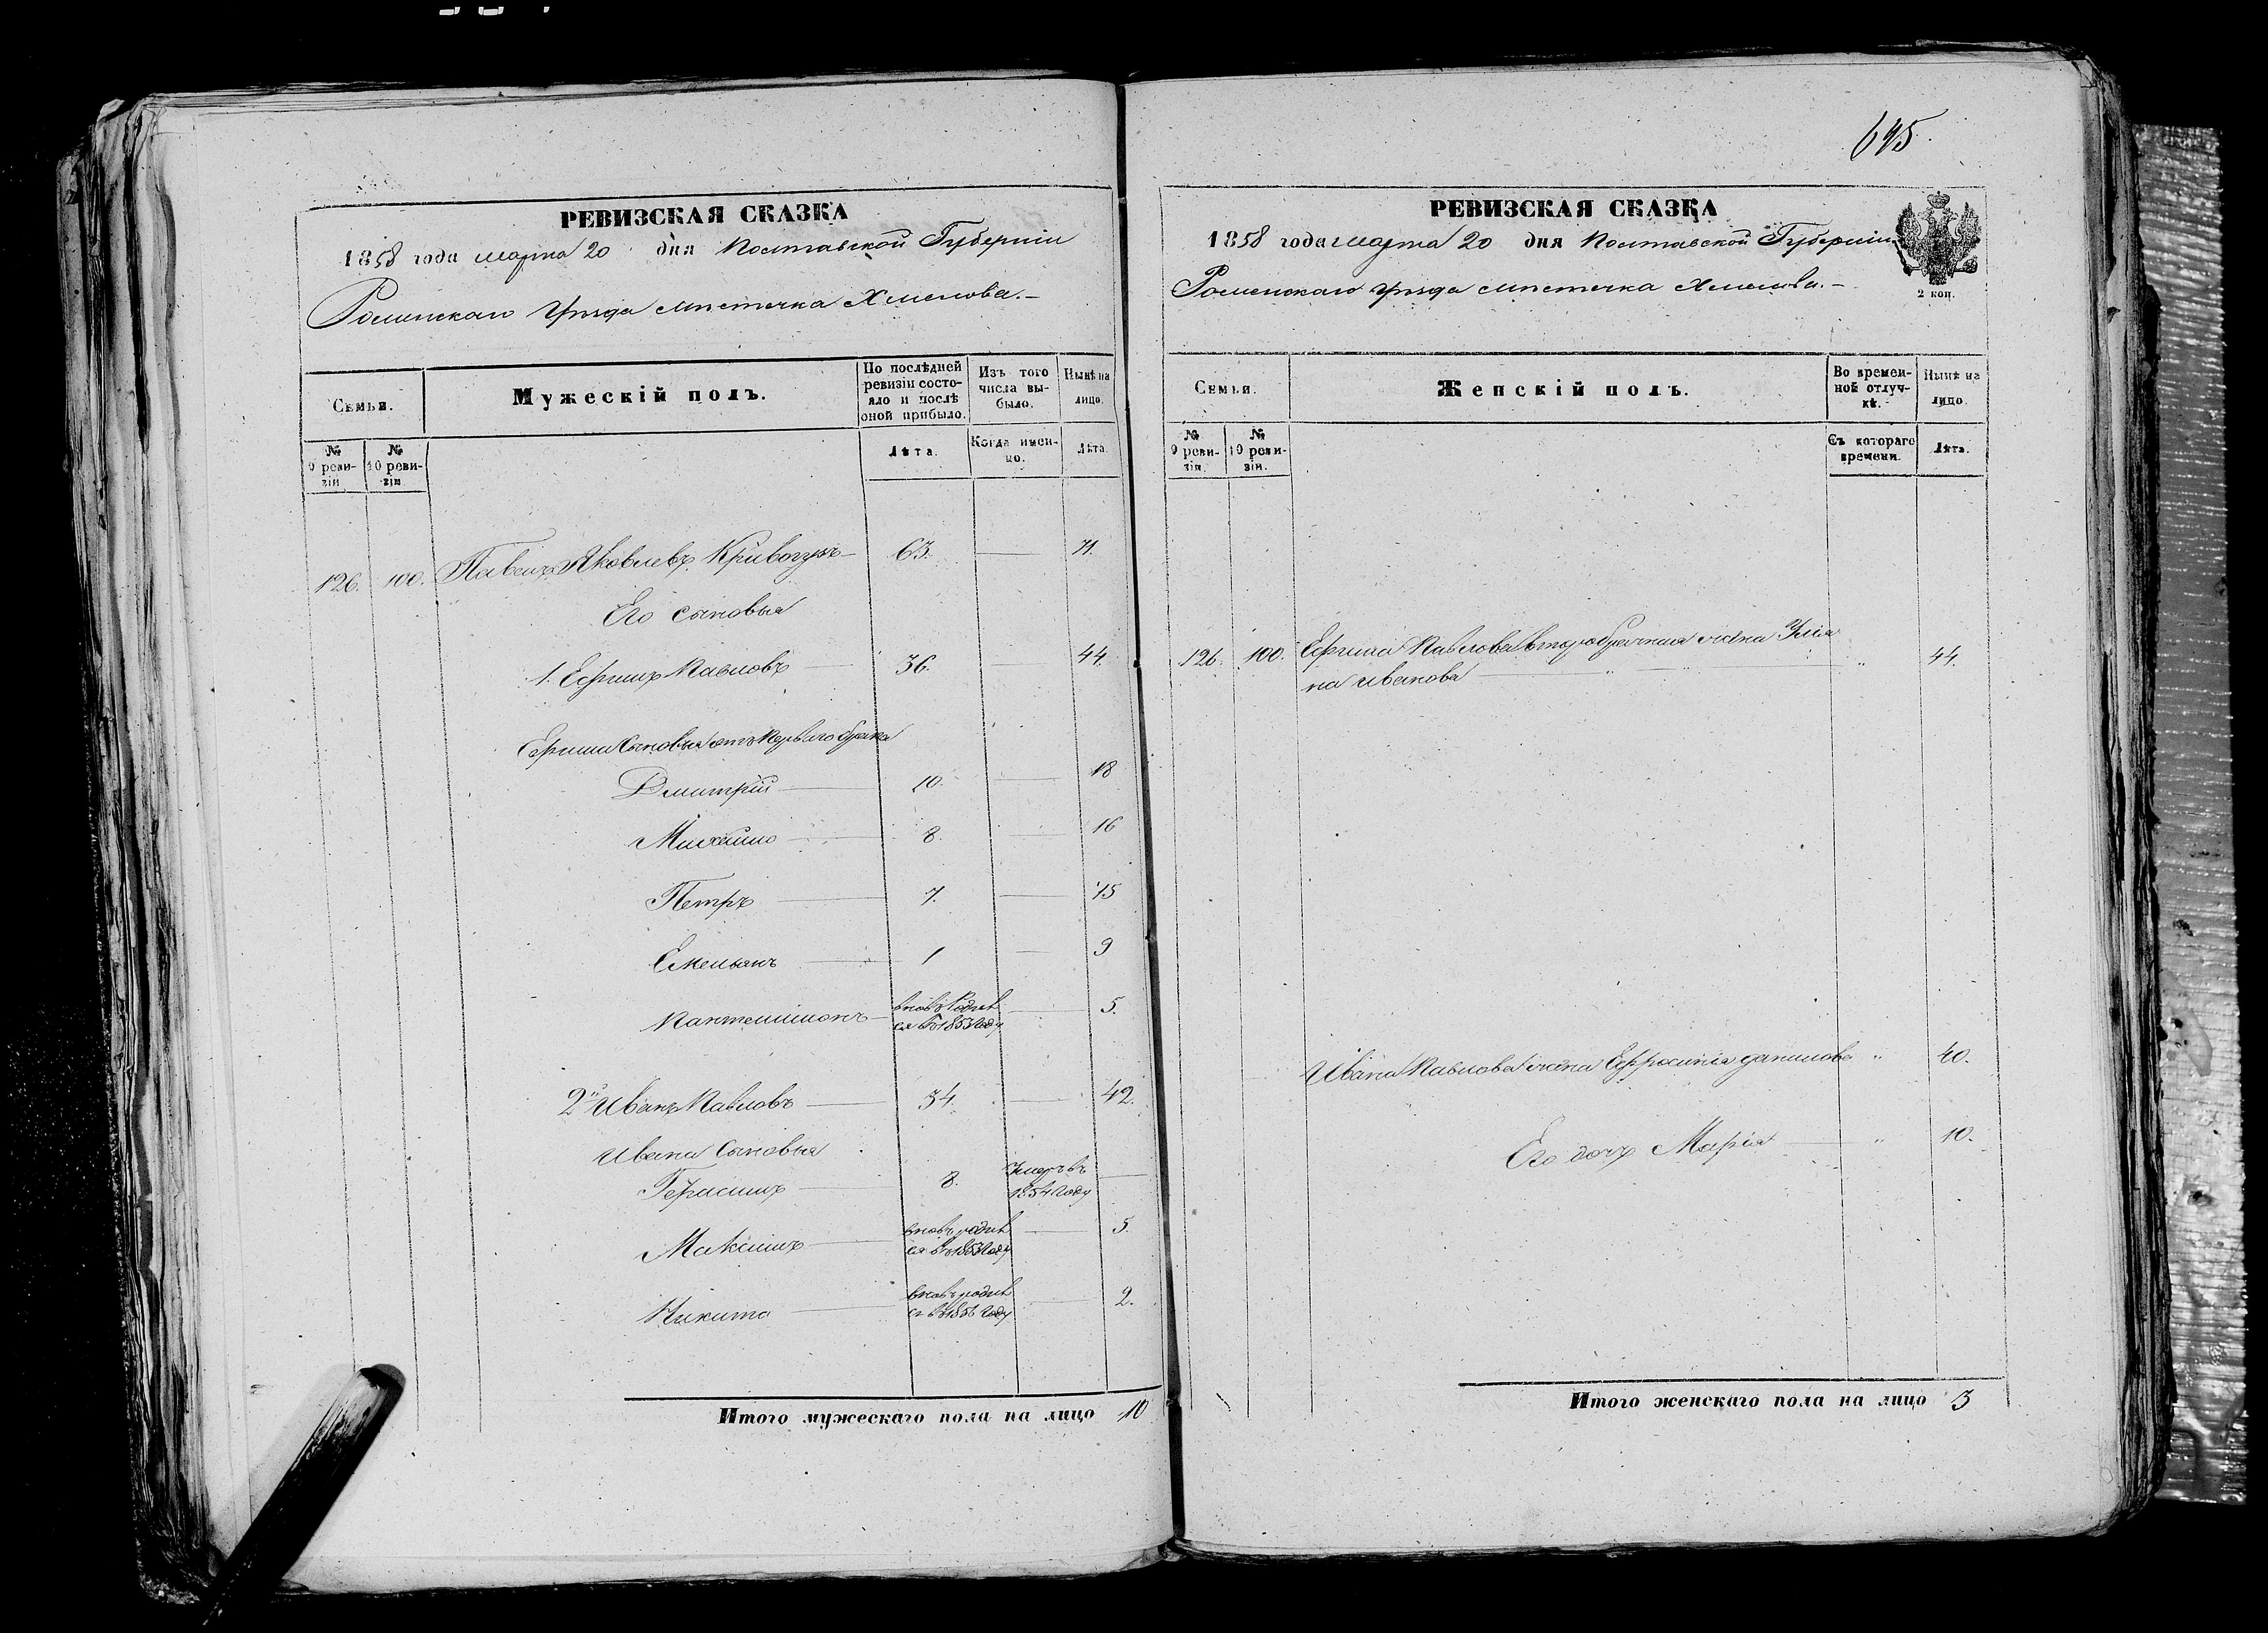 645.
РЕВИЗСКАЯ СКАЗКА
1858 года марта 20 дня Полтавской Губерніи
Роменскаго Уѣзда мѣстечка Хмелова.-
Семьи.
Мужескій полъ.
По послѣдней ревизіи состояло и послѣ оной прибыло.
Изъ того числа выбыло.
Нынѣ на лицо.
№ 9 ревизіи
№ 10 ревизіи
Лѣта.
Когда именно.
Лѣта.
126. 100. Павелъ Яковлевъ 63. 71.
Его сыновья
1. Ефимъ Павловъ 36. 44.
Ефима Сыновья отъ перваго брака
Дмитрій 10. 18
Михайло 8. 16
Петръ 7. 15
Емельянъ 1 9
Пантелимонъ вновь родив 5.
ся въ 1853 году
2й Иванъ Павловъ 34. 42.
Ивана Сыновья
Герасимъ 8. Умеръ въ
1854 году
Максимъ вновь родив 5.
ся въ 1853 году
Никита вновь родив 2.
ся въ 1856 году
Итого мужескаго пола на лицо 10
РЕВИЗСКАЯ СКАЗКА
1858 года марта 20 дня Полтавской Губерніи
Роменскаго Уѣзда мѣстечка Хмелова.-
2 коп.
Семьи.
Женскій полъ.
Во временной отлучкѣ.
Нынѣ на лицо.
№ 9 ревизіи.
№ 10 ревизіи.
Съ котораго времени.
Лѣта.
126. 100. Ефима Павлова второбрачная жена Улія
на Иванова " 44.
Ивана Павлова жена Ефросинія Данилова " 40.
Его дочь Марія " 10.
Итого женскаго пола на лицо 3